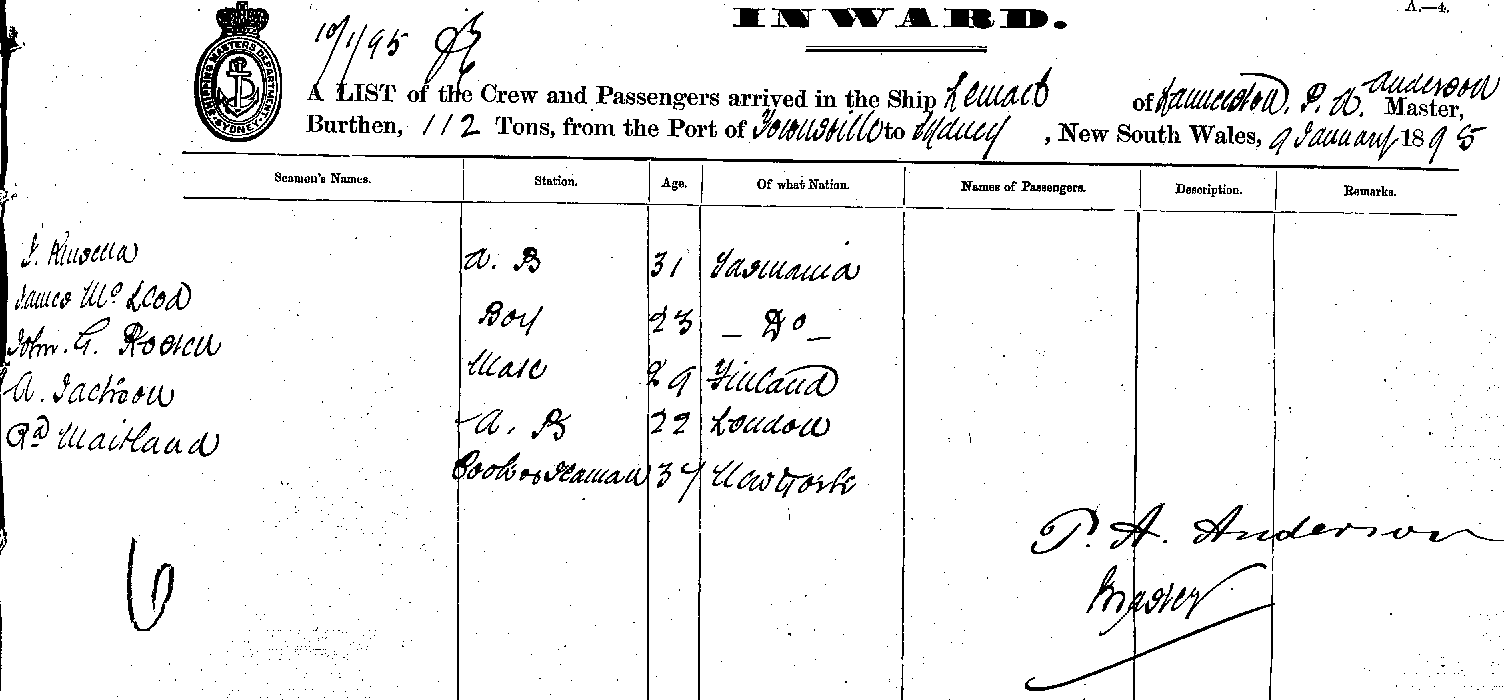 INWARD.
A.—4.
10/1/95
SHIPPING MASTERS DEPARTMENT
SYDNEY
A LIST of the Crew and Passengers arrived in the Ship of Launceston, P. A. Anderson Master,
Burthen, 112 Tons, from the Port of Townsville to Sydney, New South Wales, 9 January 1895
Seamen's Names. Station. Age. Of what Nation. Names of Passengers. Description. Remarks.
A. B 31 Tasmania
James McLeod Boy 23 – Do –
John. G. Mate 29 Finland
A. Jackson A. B 22 London
Rd Maitland Cook & Seaman 37 New York
6
P. A. Anderson
Master